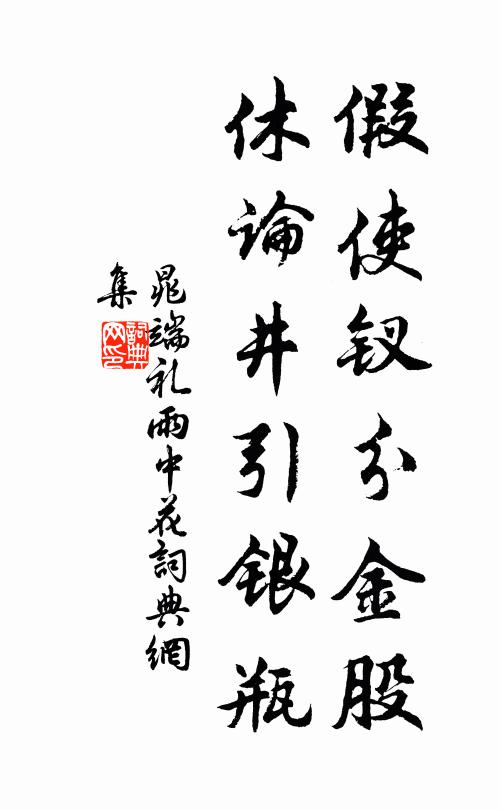 假使钗分金股
休論井引銀瓶
晁端礼雨中花詞典網
集
詞典網印